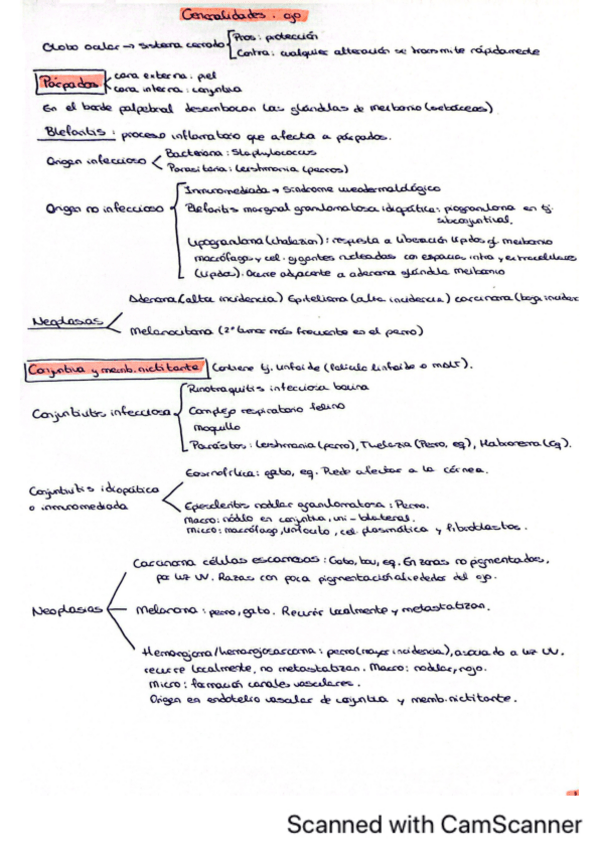 Generalidades. ojo
Globo ocular → sistema cerrado
Pros: protección
Contra: cualquier alteración se transmite rápidamente
Párpados
cara externa: piel
cara interna: conjuntiva
En el borde palpebral desembocan las glándulas de meibomio (sebáceas)
Blefaritis: proceso inflamatorio que afecta a párpados.
Origen infeccioso
Bacteriana: Staphylococcus
Parasitaria: Leishmania (perros)
Origen no infeccioso
Inmunomediada → Síndrome uveodermatológico
Blefaritis marginal granulomatosa idiopática: piogranuloma en tj. subconjuntival.
Lipogranuloma (chalazion): respuesta a liberación lípidos gl meibomio
macrófagos y cel. gigantes nucleadas con espacios intra y extracelulares
(lípidos). Ocurre adyacente a adenoma glándula meibomio
Neoplasias
Adenoma (alta incidencia) Epitelioma (alta incidencia) carcinoma (baja inciden
Melanocitoma (2º tumor más frecuente en el perro)
Conjuntiva y memb. nictitante
Contiene tj. linfoide (folículo linfoide o MALT).
Conjuntivitis infecciosa
Rinotraqueitis infecciosa bovina
Complejo respiratorio felino
Moquillo
Parásitos: Leishmania (perro), Thelazia (Perro, eq), Habronema (Eq).
Conjuntivitis idiopática
o inmunomediada
Eosinofílica: gato, eq. Puede afectar a la córnea.
Epiescleritis nodular granulomatosa: Perro.
Macro: nódulo en conjuntiva, uni-bilateral.
Micro: macrófago, linfocito, cel. plasmática y fibroblastos.
Neoplasias
Carcinoma células escamosas: Gato, bov, eq. En zonas no pigmentadas,
por luz UV. Razas con poca pigmentación alrededor del ojo.
Melanoma: perro, gato. Recurrir localmente y metastatizan.
Hemangioma/hemangiosarcoma: perro (mayor incidencia), asociado a luz UV.
recurre localmente, no metastatizan. Macro: nodular, rojo.
Micro: formación canales vasculares.
Origen en endotelio vascular de conjuntiva y memb. nictitante.
Scanned with CamScanner